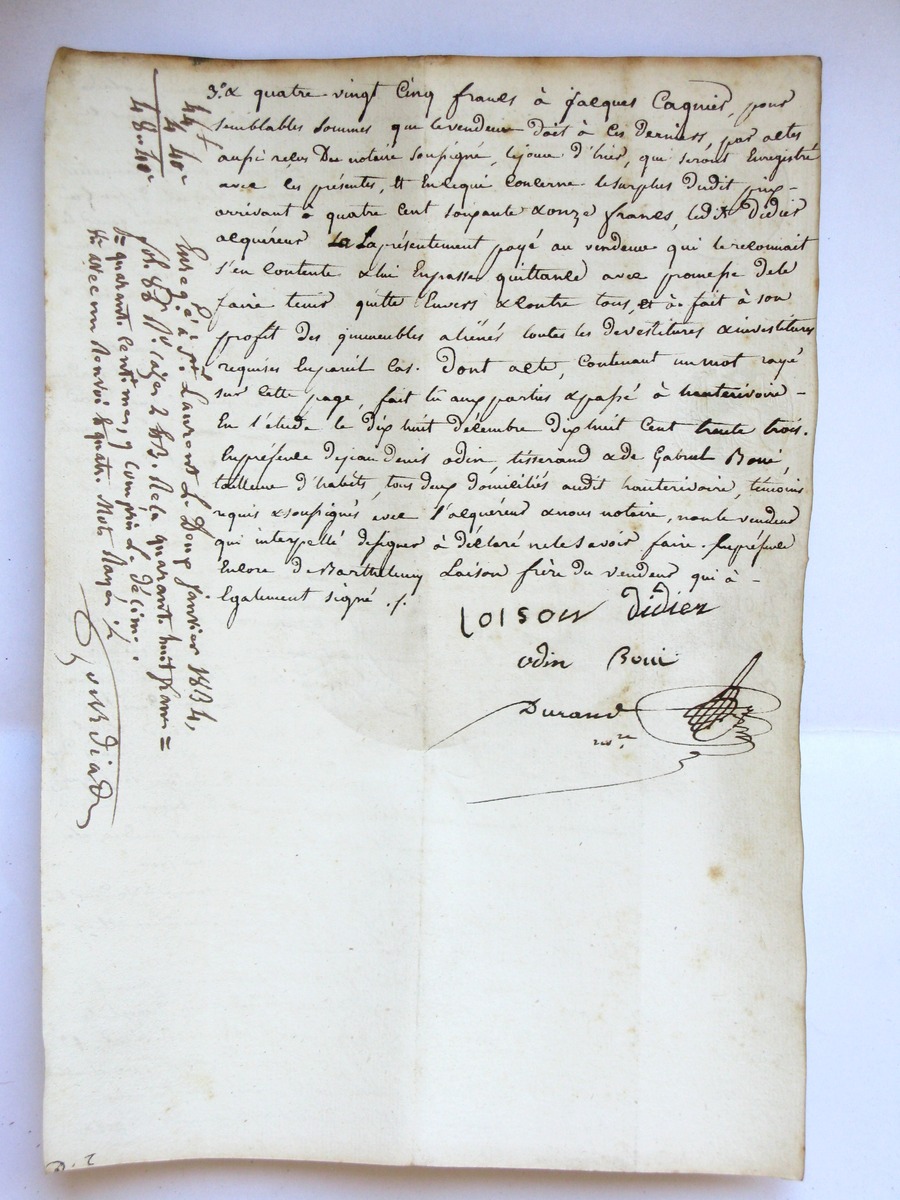 3.° & quatre vingt cinq francs à Jacques Cagnier, pour
semblables sommes que le vendeur doit à ces derniers, par actes
aussi reçus du notaire soussigné, le jour d'hier, qui seront enregistré
avec les présentes, et en ce qui concerne le surplus dudit prix –
arrivant à quatre cent soixante & onze francs, ledit Didier
acquéreur la présentement payé au vendeur qui le reconnait
s'en contente & lui en passe quittance avec promesse de le
faire tenir quitte envers & contre tous, et à fait à son
profit des immeubles aliénés toutes les devestitures & investitures
requises en pareil cas. Dont acte, contenant un mot rayé
sur cette page, fait lu aux parties & passé à hauterivoire –
en l'étude le dix huit décembre dix huit cent trente trois.
en présence de jean denis odin, tisserand & de Gabriel Boué,
tailleur d'habits, tous deux domiciliés audit hauterivoire, témoins
requis & soussignés avec l'acquéreur & nous notaire, non le vendeur
qui interpellé de signer à déclaré ne le savoir faire. en présence
encore de Barthelemy Loison frère du vendeur qui à –
également signé ./.
LOISON Didier
odin Boué
Durand
nore
44 f
4 40c
48 .. 40c
Enreg.é à St. Laurent le Douze Janvier 1834,
fol. 82 Vo. cases 2 & 3. Reçu quarante huit francs =
quarante centimes, y compris le décime.
avec un renvoi & quatre mots rayés ./.